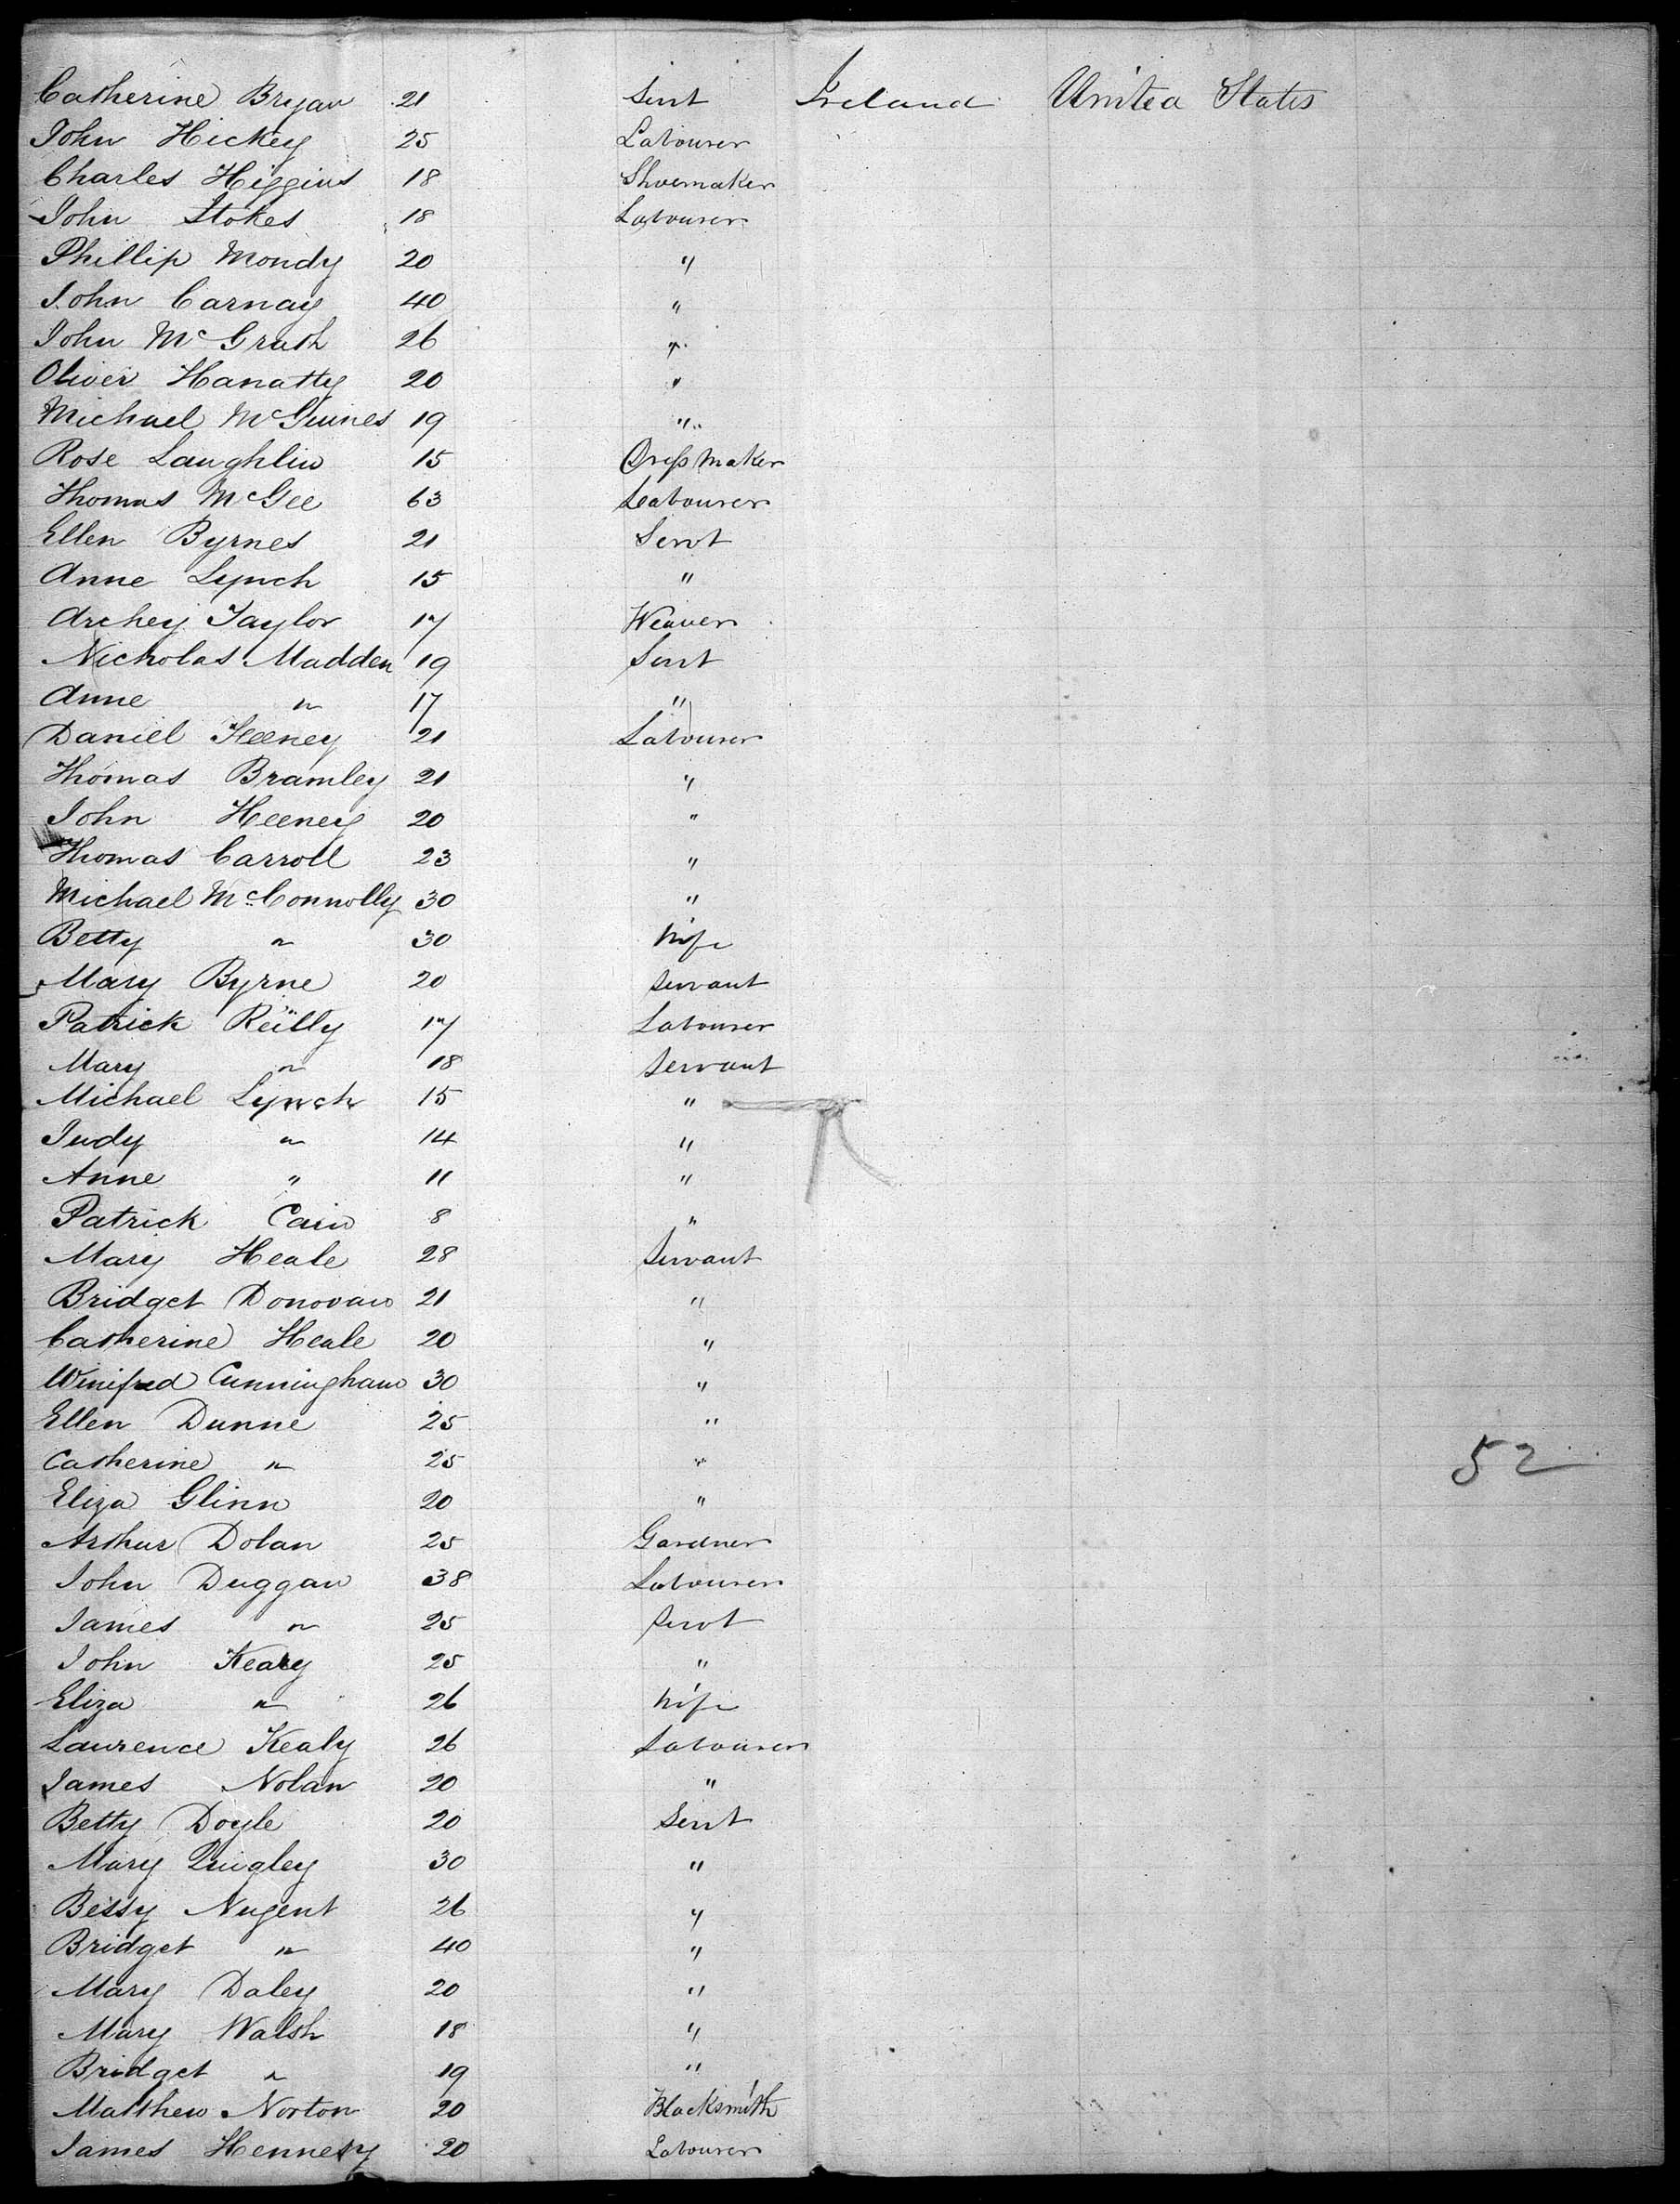 Catherine Bryan 21 Servt Ireland United States
John Hickey 25 Labourer
Charles Higgins 18 Shoemaker
John Stokes 18 Labourer
Phillip Mondy 20 "
John Carnay 40 "
John McGrath 26 "
Oliver Hanatty 20 "
Michael McGuines 19 "
Rose Laughlin 15 Dress Maker
Thomas McGee 63 Labourer
Ellen Byrnes 21 Servt
Anne Lynch 15 "
Archey Taylor 17 Weaver
Nicholas Madden 19 Servt
Anne " 17 "
Daniel Heeney 21 Labourer
Thomas Bramley 21 "
John Heeney 20 "
Thomas Carroll 23 "
Michael McConnolly 30 "
Betty " 30 Wife
Mary Byrne 20 Servant
Patrick Reilly 17 Labourer
Mary " 18 Servant
Michael Lynch 15 "
Judy " 14 "
Anne " 11 "
Patrick Cain 8 "
Mary Heale 28 Servant
Bridget Donovan 21 "
Catherine Heale 20 "
Winifred Cunningham 30 "
Ellen Dunne 25 "
Catherine " 25 " 52
Eliza Glinn 20 "
Arthur Dolan 25 Gardner
John Duggan 38 Labourer
James " 25 Servt
John Kealy 25 "
Eliza " 26 Wife
Laurence Kealy 26 Labourer
James Nolan 20 "
Betty Doyle 20 Servt
Mary Quigley 30 "
Bessy Nugent 26 "
Bridget " 40 "
Mary Daley 20 "
Mary Walsh 18 "
Bridget " 19 "
Matthew Norton 20 Blacksmith
James Hennesy 20 Labourer